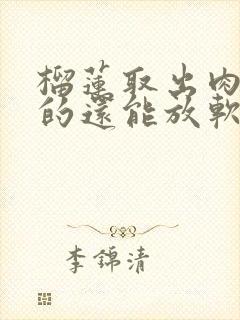 榴蓮取出肉
的還能放軟
李錦清